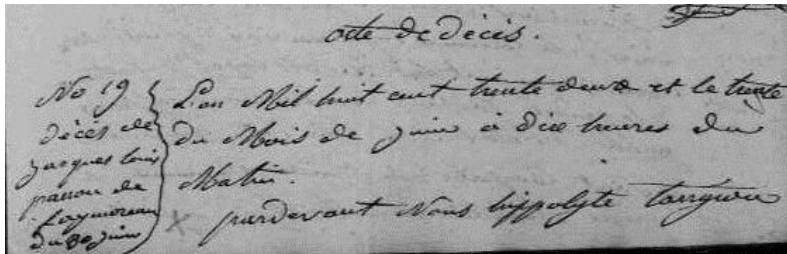 acte de Décès.
No 19
Décès de
jacques louis
panou de
faymoreau
du 30 juin
L'an Mil huit cent trente deux et le trente
du Mois de juin à dix heures du
Matin.
pardevant Nous hippolyte